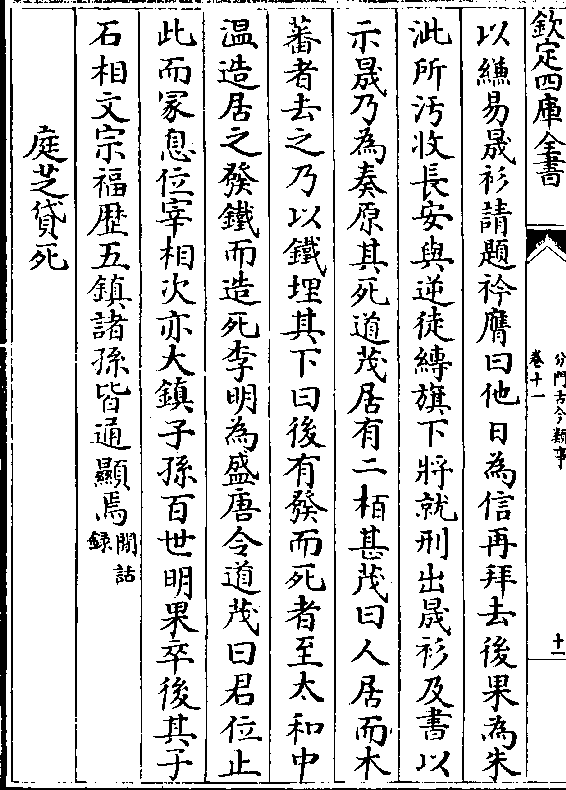 欽定四庫全書
分門古今類事
卷十一
十一
以縑易晟衫請題衿膺曰他日為信再拜去後果為朱
泚所汚收長安與逆徒縛旗下將就刑出晟衫及書以
示晟乃為奏原其死道茂居有二栢甚茂曰人居而木
蕃者去之乃以鐵埋其下曰後有發而死者至太和中
温造居之發鐵而造死李明為盛唐令道茂曰君位止
此而冢息位宰相次亦大鎮子孫百世明果卒後其子
石相文宗福歴五鎮諸孫皆通顯焉聞話錄
庭芝貸死